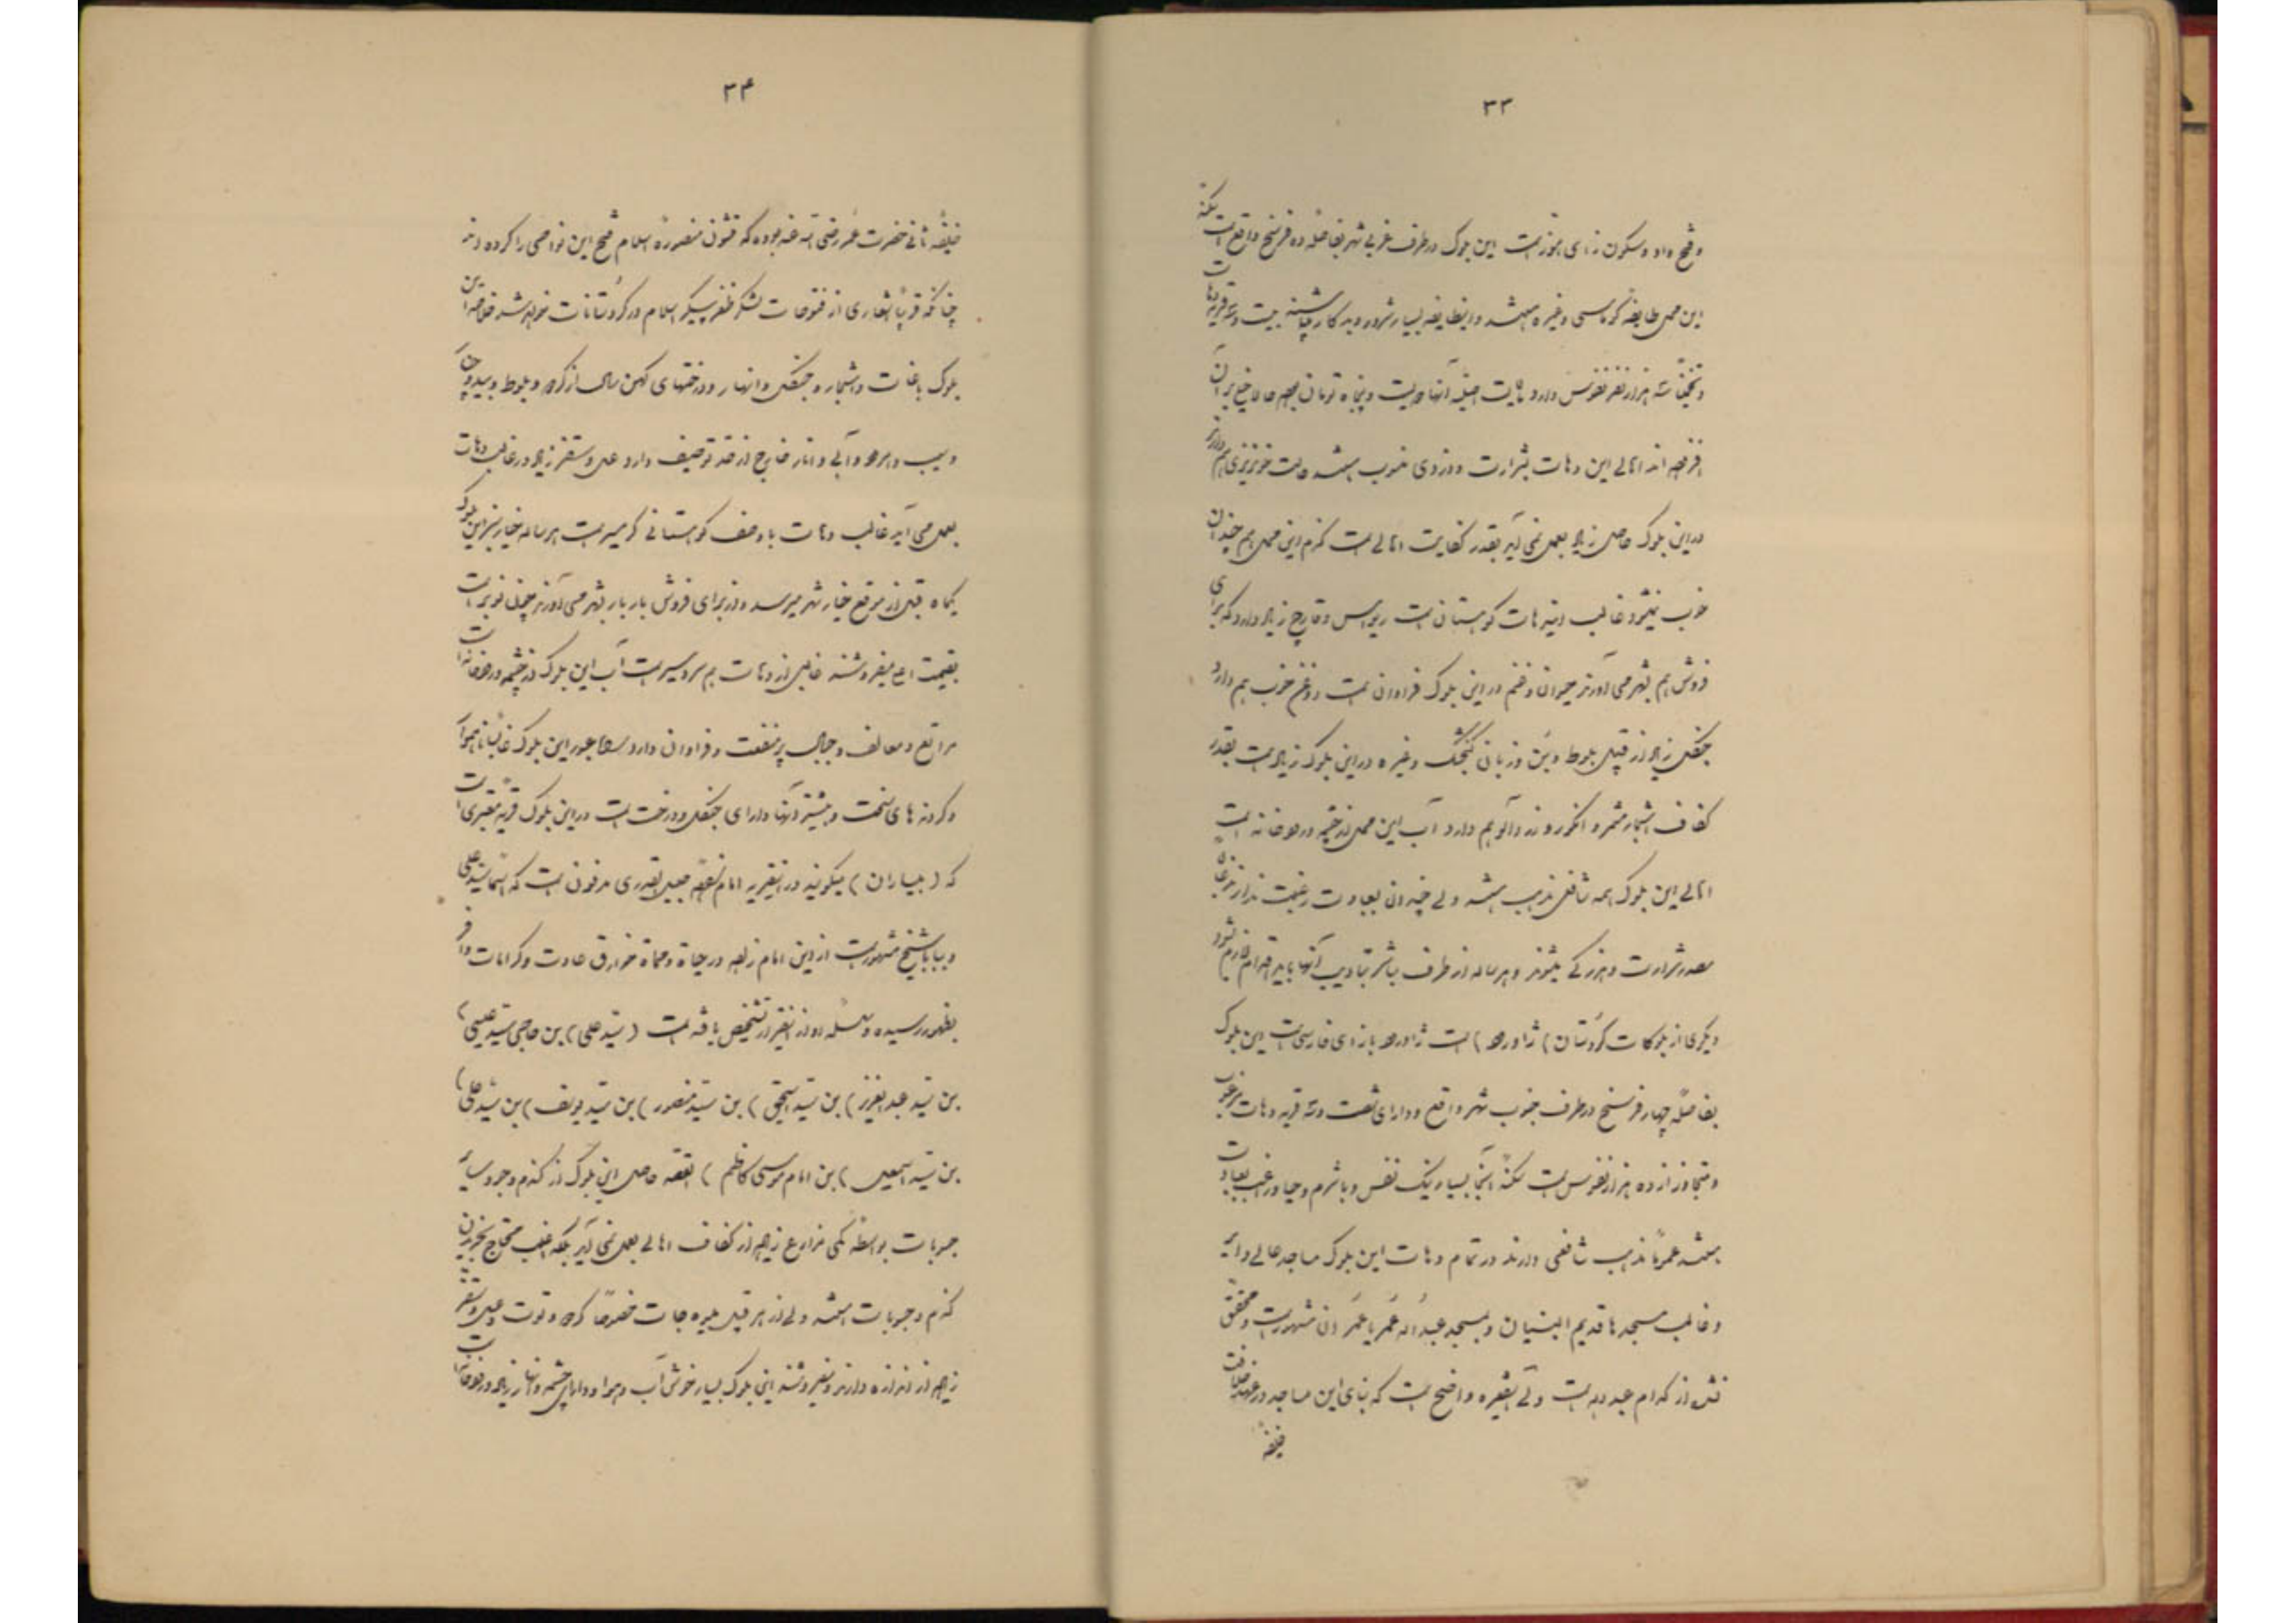 ۳۳
و فتح واو و سکون زای هوز است این بلوک در طرف غربی شهر بفاصله ده فرسخ واقع است سکنه
این محل طایفه کوماسی و غیره میباشند و این طایفه بسیار شرور و بدکار میباشند بیست و سه قریه دهات
و تخمیناً سه هزار نفر نفوس دارد مالیات اصلیه آنها دویست و پنجاه تومان بوده حالا خیلی بر آن
افزوده اند اهالی این دهات بشرارت و دزدی منسوب میباشند حالت خونریزی هم دارند
در این بلوک حاصل زیاد بعمل نمی آید بقدر کفایت اهالی است گندم این محل هم چندان
خوب نمیشود غالب این دهات کوهستان است ریواس و قارچ زیاد دارد که برای
فروش هم بشهر می آورند حیوان و غنم در این بلوک فراوان است روغن خوب هم دارد
جنگل زیاد از قبیل بلوط و بن و زبان گنجشک و غیره در این بلوک زیاد است بقدر
کفاف اشجار مثمر و انگور و زردآلو هم دارد آب این محل از چشمه و رودخانه است
اهالی این بلوک همه شافعی مذهب میباشند ولی چندان بعبادت رغبت ندارند غالباً
مصدر شرارت و هرزگی میشوند و هر ساله از طرف مباشر بتادیب آنها باید اقدام لازم بشود
دیگری از بلوکات کردستان (ژاورود) است ژاورود با زای فارسی است این بلوک
بفاصله چهار فرسخ در طرف جنوب شهر واقع و دارای شصت و سه قریه دهات مرغوب
و متجاوز از ده هزار نفوس است سکنه اینجا بسیار نیک نفس و با شرم و حیا و راغب بعبادت
میباشند عموماً مذهب شافعی دارند در تمام دهات این بلوک مساجد عالی دایر
و غالب مسجدها قدیم البنیان و بمسجد عبدالله عمر یا عمران مشهور است و محقق
نشد از کدام عبدالله است ولی اینقره واضح است که بنای این مساجد در عهد خلافت
خلیفه
۳۴
خلیفه ثانی حضرت عمر رضی الله عنه بوده که قشون منصوره اسلام فتح این نواحی را کرده اند
چنانکه قریباً اشعاری از فتوحات لشکر ظفر پیکر اسلام در کردستانات خواهد شد خلاصه این
بلوک باغات و اشجار و جنگل و انهار و درختهای کهن سال از گردو و بلوط و بید و چنار
و سیب و امرود و آبی و انار خارج از حد توصیف دارد عسل و سقز زیاد در غالب دهات
بعمل می آید غالب دهات با وصف کوهستانی گرمسیر است هر ساله خیار سبز این بلوک
یکماه قبل از موقع خیار شهر میرسد و از برای فروش بار بار بشهر می آورند چون نوبر است
بقیمت اعلی میفروشند خیلی از دهات هم سردسیر است آب این بلوک از چشمه و رودخانه است
مراتع و معالف و جبال پر منفعت و فراوان دارد راه عبور این بلوک غالباً ناهموار
و گردنه های سخت و بیشتر آنها دارای جنگل و درخت است در این بلوک قریه معتبری است
که (بیساران) میگویند در این قریه امام زاده جلیل القدری مدفون است که اسماً سید علی
و ببابا شیخ مشهور است از این امام زاده در حیاة و مماة خوارق عادت و کرامات وافر
بظهور رسیده و سلسله او از اینقرار تشخیص یافته است (سید علی) بن حاجی سید عیسی)
بن سید عبدالعزیز) بن سید اسحق) بن سید منصور) بن سید یوسف) بن سید علی)
بن سید اسمعیل) بن امام موسی کاظم) القصه حاصل این بلوک از گندم و جو و سایر
حبوبات بواسطه کمی مزارع زیاده از کفاف اهالی بعمل نمی آید بلکه اغلب محتاج بخریدن
گندم و حبوبات میباشند ولی از هر قبیل میوه جات خصوصاً گردو و توت و عسل و سقز
زیاده از اندازه دارند و میفروشند این بلوک بسیار خوش آب و هوا و دارای چشمه و انهار زیاد و رودخانه است